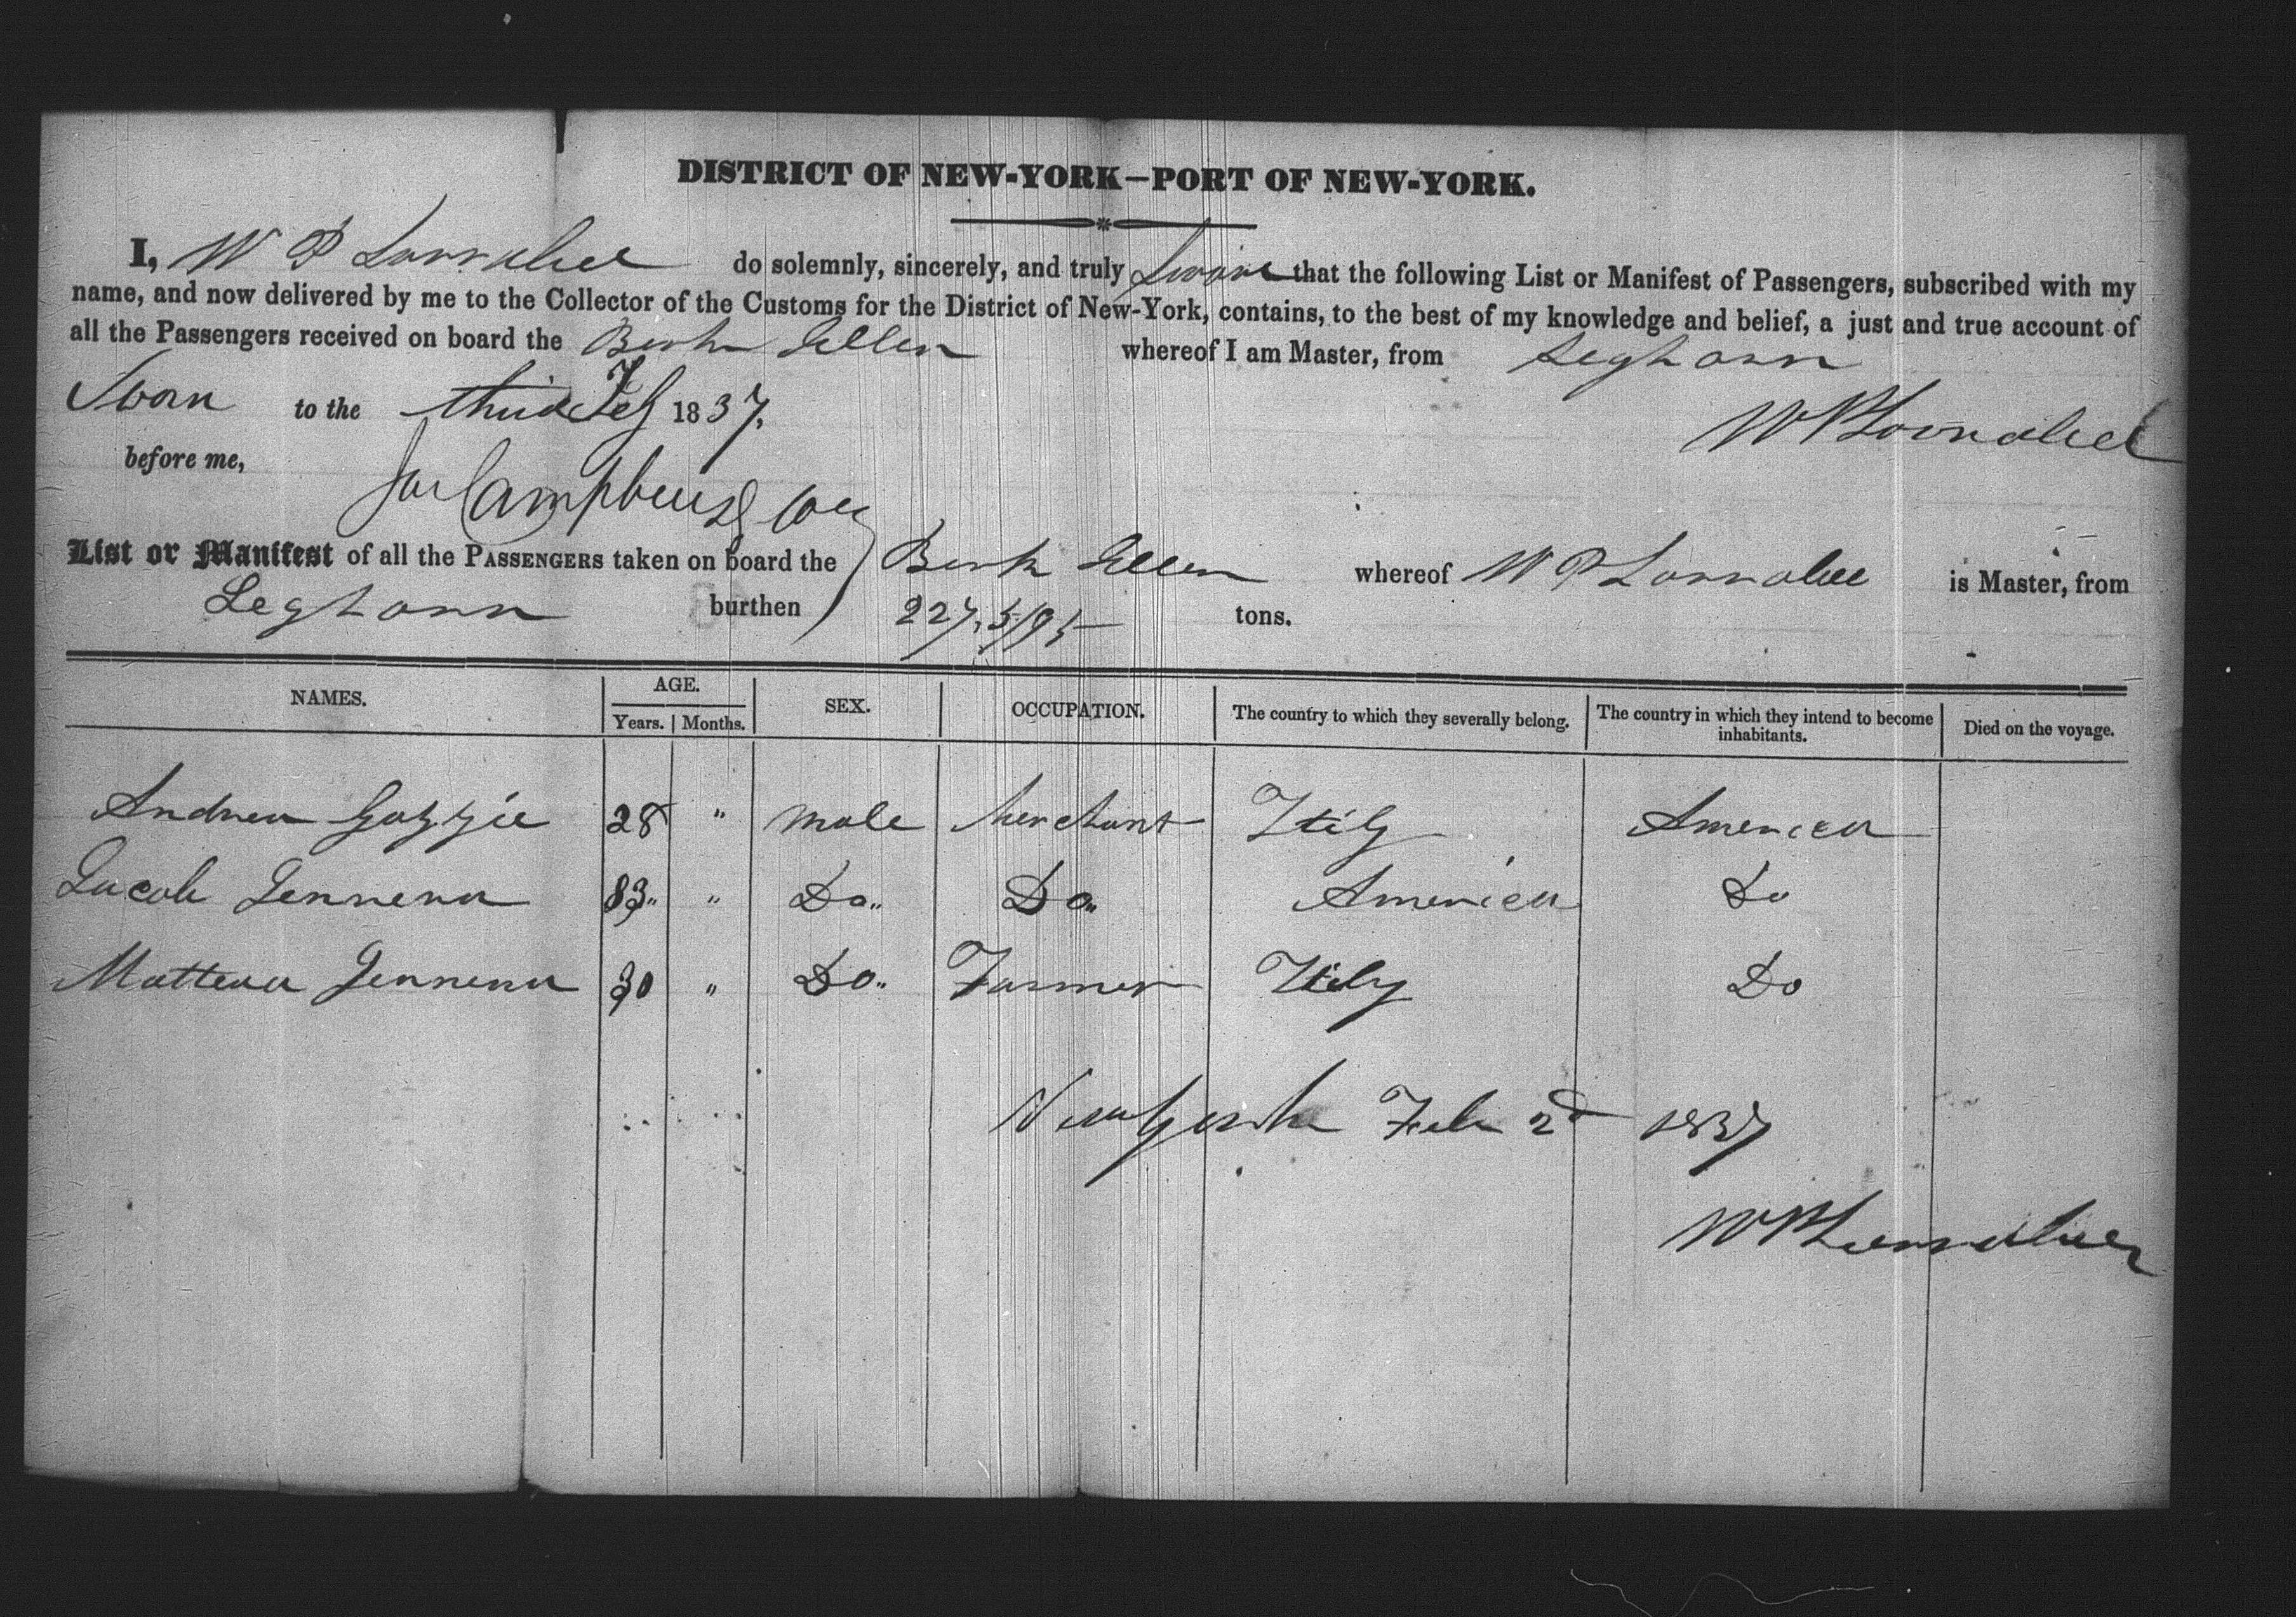 DISTRICT OF NEW-YORK—PORT OF NEW-YORK.
I, W P Larrabee do solemnly, sincerely, and truly Swore that the following List or Manifest of Passengers, subscribed with my
name, and now delivered by me to the Collector of the Customs for the District of New-York, contains, to the best of my knowledge and belief, a just and true account of
all the Passengers received on board the Bark Ellen whereof I am Master, from Leghorn
Sworn to the third Feb 1837.
W P Larrabee
before me,
Campbell
List or Manifest of all the PASSENGERS taken on board the Bark Ellen whereof W P Larrabee is Master, from
Leghorn burthen 227.5/95 tons.
NAMES. AGE. Years. Months. SEX. OCCUPATION. The country to which they severally belong. The country in which they intend to become inhabitants. Died on the voyage.
Andrea Gozzie 28 " male Merchant Itily America
Jacob Jennera 83 " Do.. Do.. America Do
Mattera Jennera 30 " Do.. Farmer Itily Do
New York Feb 2d 1837
W P Larrabee